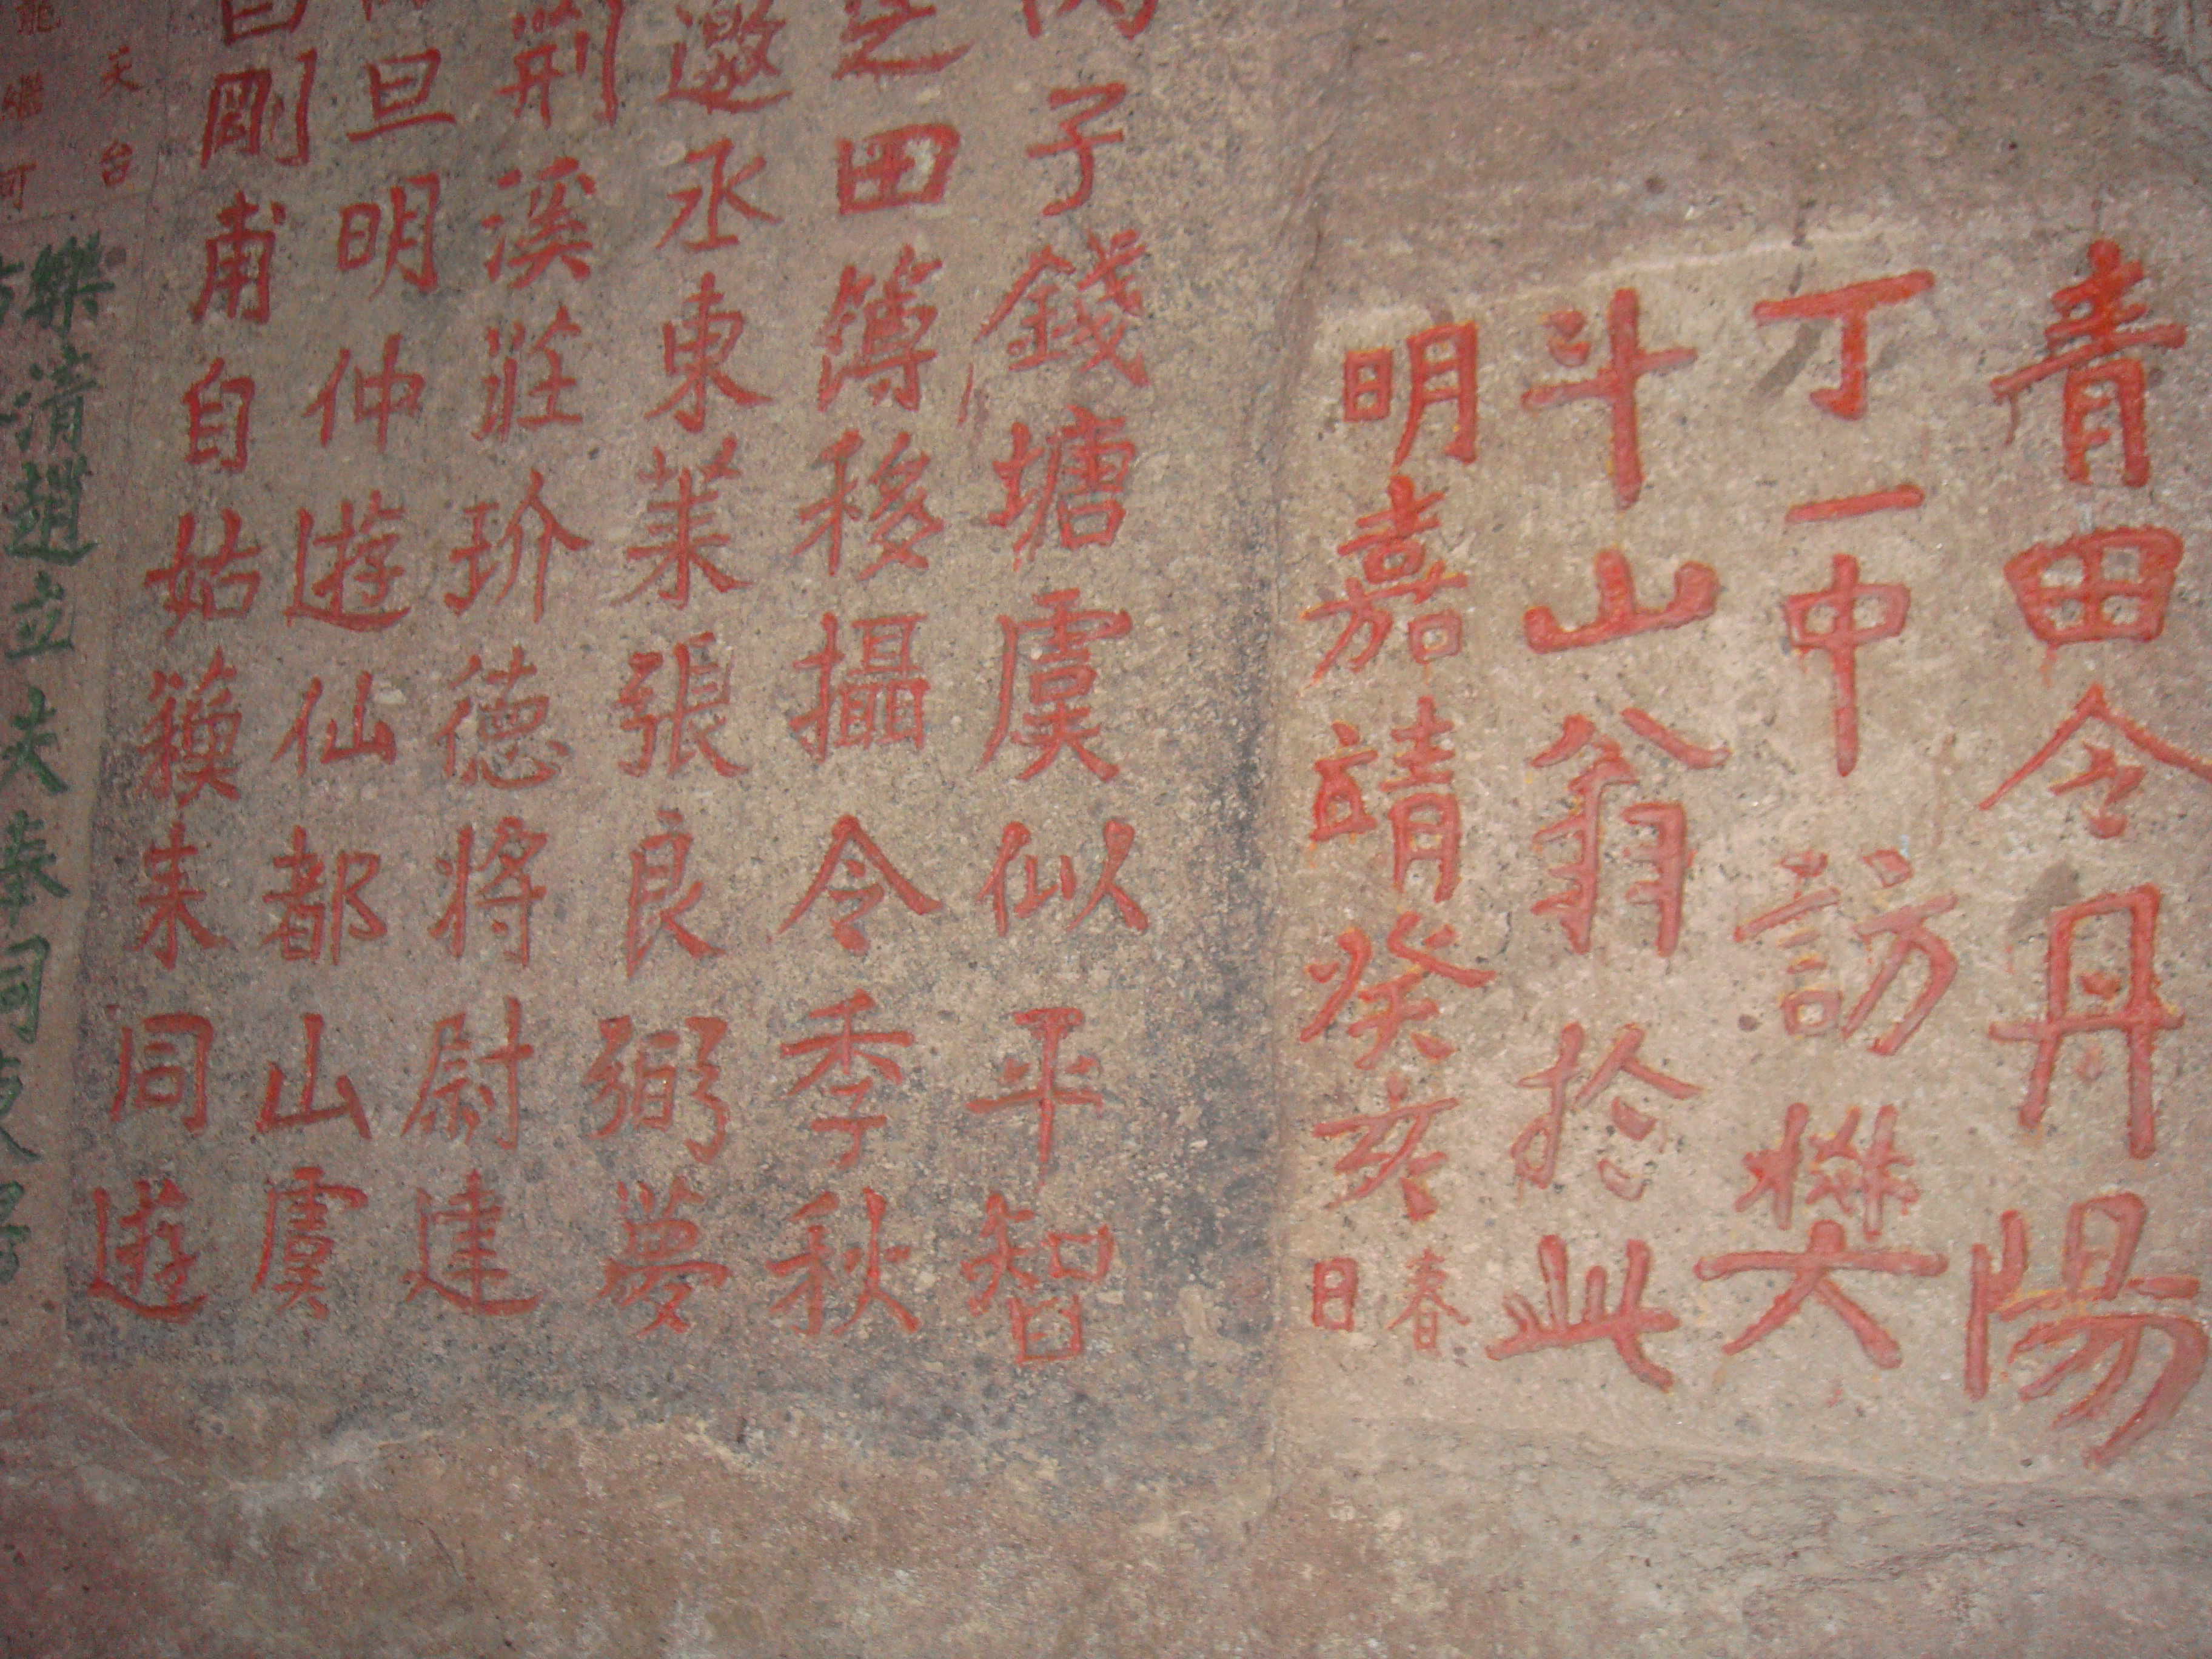 青田令丹陽
丁一中訪樊
斗山翁於此
明嘉靖癸亥
春
日
丙子錢塘虞似平智
芝田簿移攝令季秋
邀丞東萊張良弼夢
荆溪莊玠德將尉建
旦明仲遊仙都山虞
剛甫自姑蘓来同遊
天台
樂清趙立夫奉同